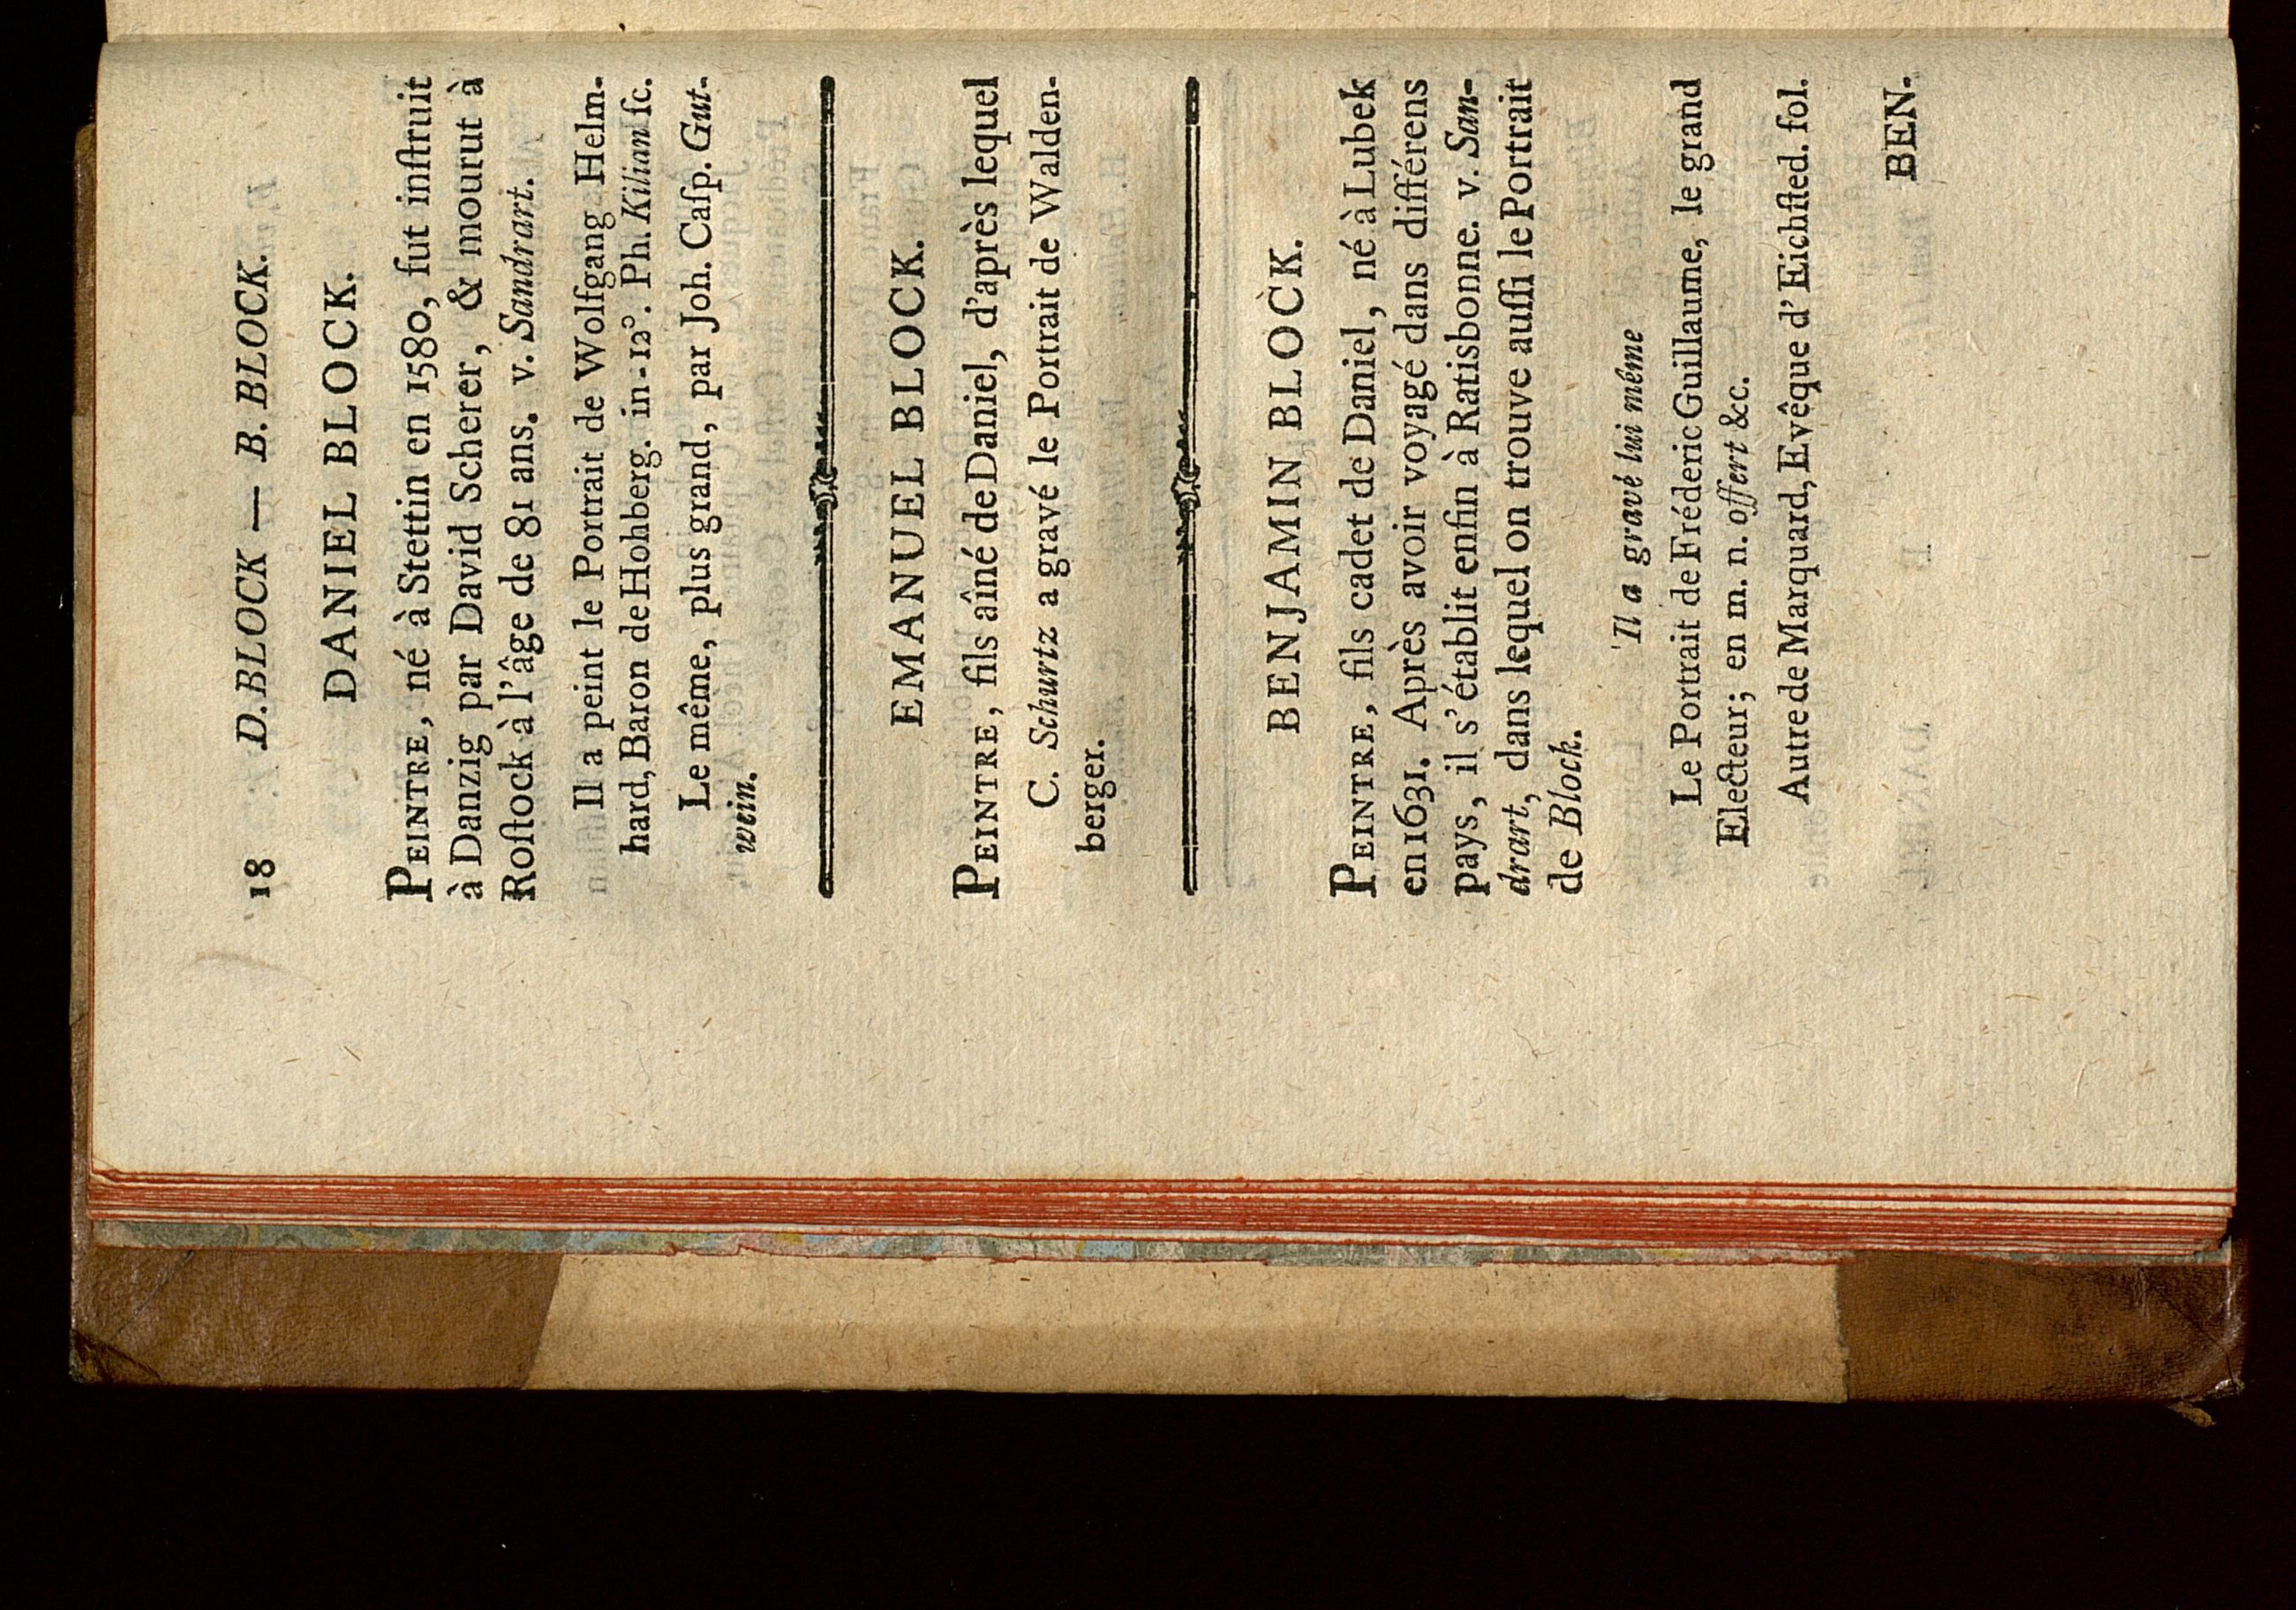 18 D. BLOCK — B. BLOCK.
DANIEL BLOCK.
PEINTRE, né à Stettin en 1580, fut inſtruit
à Danzig par David Scherer, & mourut à
Roſtock à l'âge de 81 ans. v. Sandrart.
Il a peint le Portrait de Wolfgang Helm-
hard, Baron de Hohberg. in-12°. Ph. Kilian ſc.
Le même, plus grand, par Joh. Caſp. Gut-
wein.
EMANUEL BLOCK.
PEINTRE, fils aîné de Daniel, d'après lequel
C. Schurtz a gravé le Portrait de Walden-
berger.
BENJAMIN BLOCK.
PEINTRE, fils cadet de Daniel, né à Lubek
en 1631. Après avoir voyagé dans différens
pays, il s'établit enfin à Ratisbonne. v. San-
drart, dans lequel on trouve auſſi le Portrait
de Block.
Il a gravé lui même
Le Portrait de Fréderic Guillaume, le grand
Electeur; en m. n. offert &c.
Autre de Marquard, Evêque d'Eichſted. fol.
BEN-